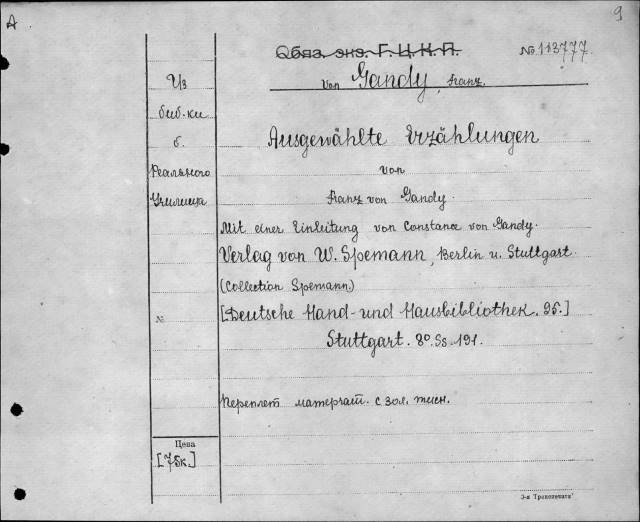 А
9
Обяз. экз. Г.Ц.К.П.
№ 113777.
von Gandy, Franz.
Из
биб-ки
б.
Реального
Училища
Ausgewählte Erzählungen
von
Franz von Gandy.
Mit einer Einleitung von Constance von Gandy.
Verlag von W. Spemann, Berlin u. Stuttgart.
(Collection Spemann.)
[Deutsche Hand- und Hausbibliothek. 95.]
№
Stuttgart. 8° Ss. 191.
Переплет матерчат. с зол. тисн.
Цена
[75к.]
3-я Транспечати